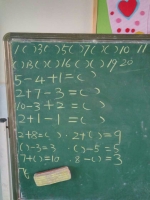 1( )3( )5( )7( )( )10 11
( )13( )( )16( )( )19 20
5-4+1=( )
2+7-3=( )
10-3+2=( )
2+1-1=( )
2+8=( ) 2+( )=9
( )-3=3 ( )-5=5
7+( )=10 8-( )=3